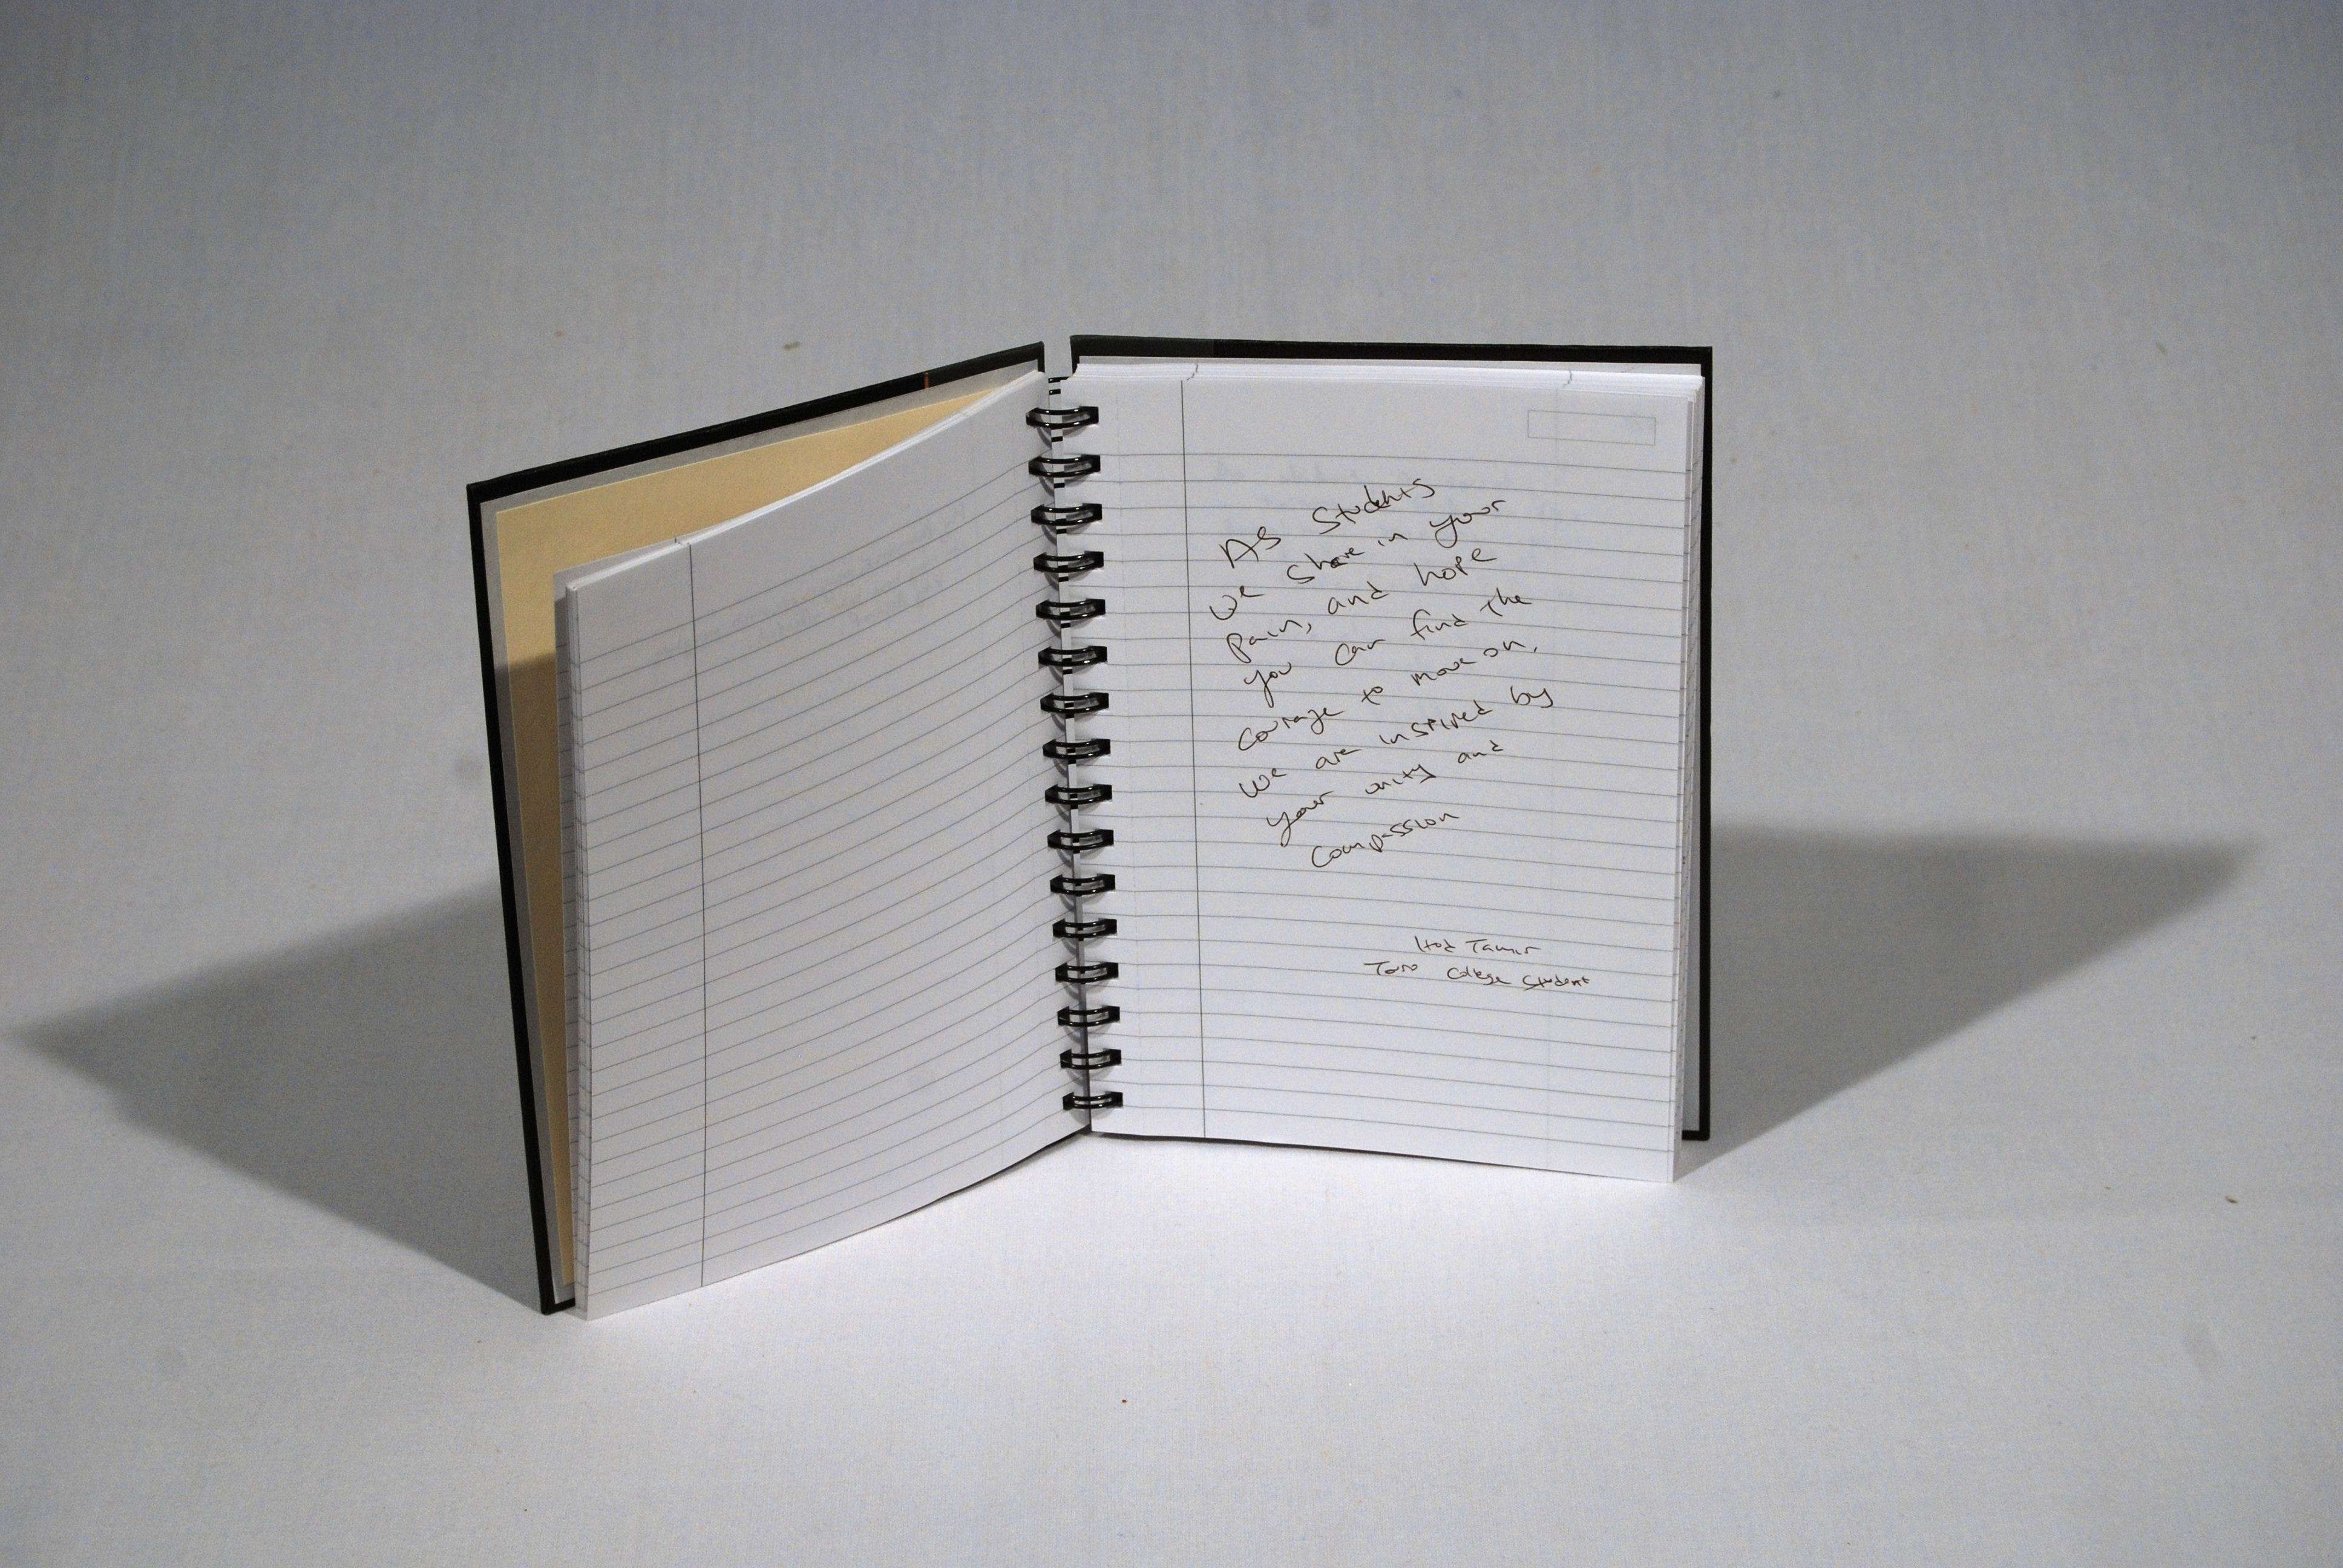 As Students
we share in your
pain, and hope
you can find the
courage to move on.
We are inspired by
your unity and
compassion
Tamir
Touro College Student